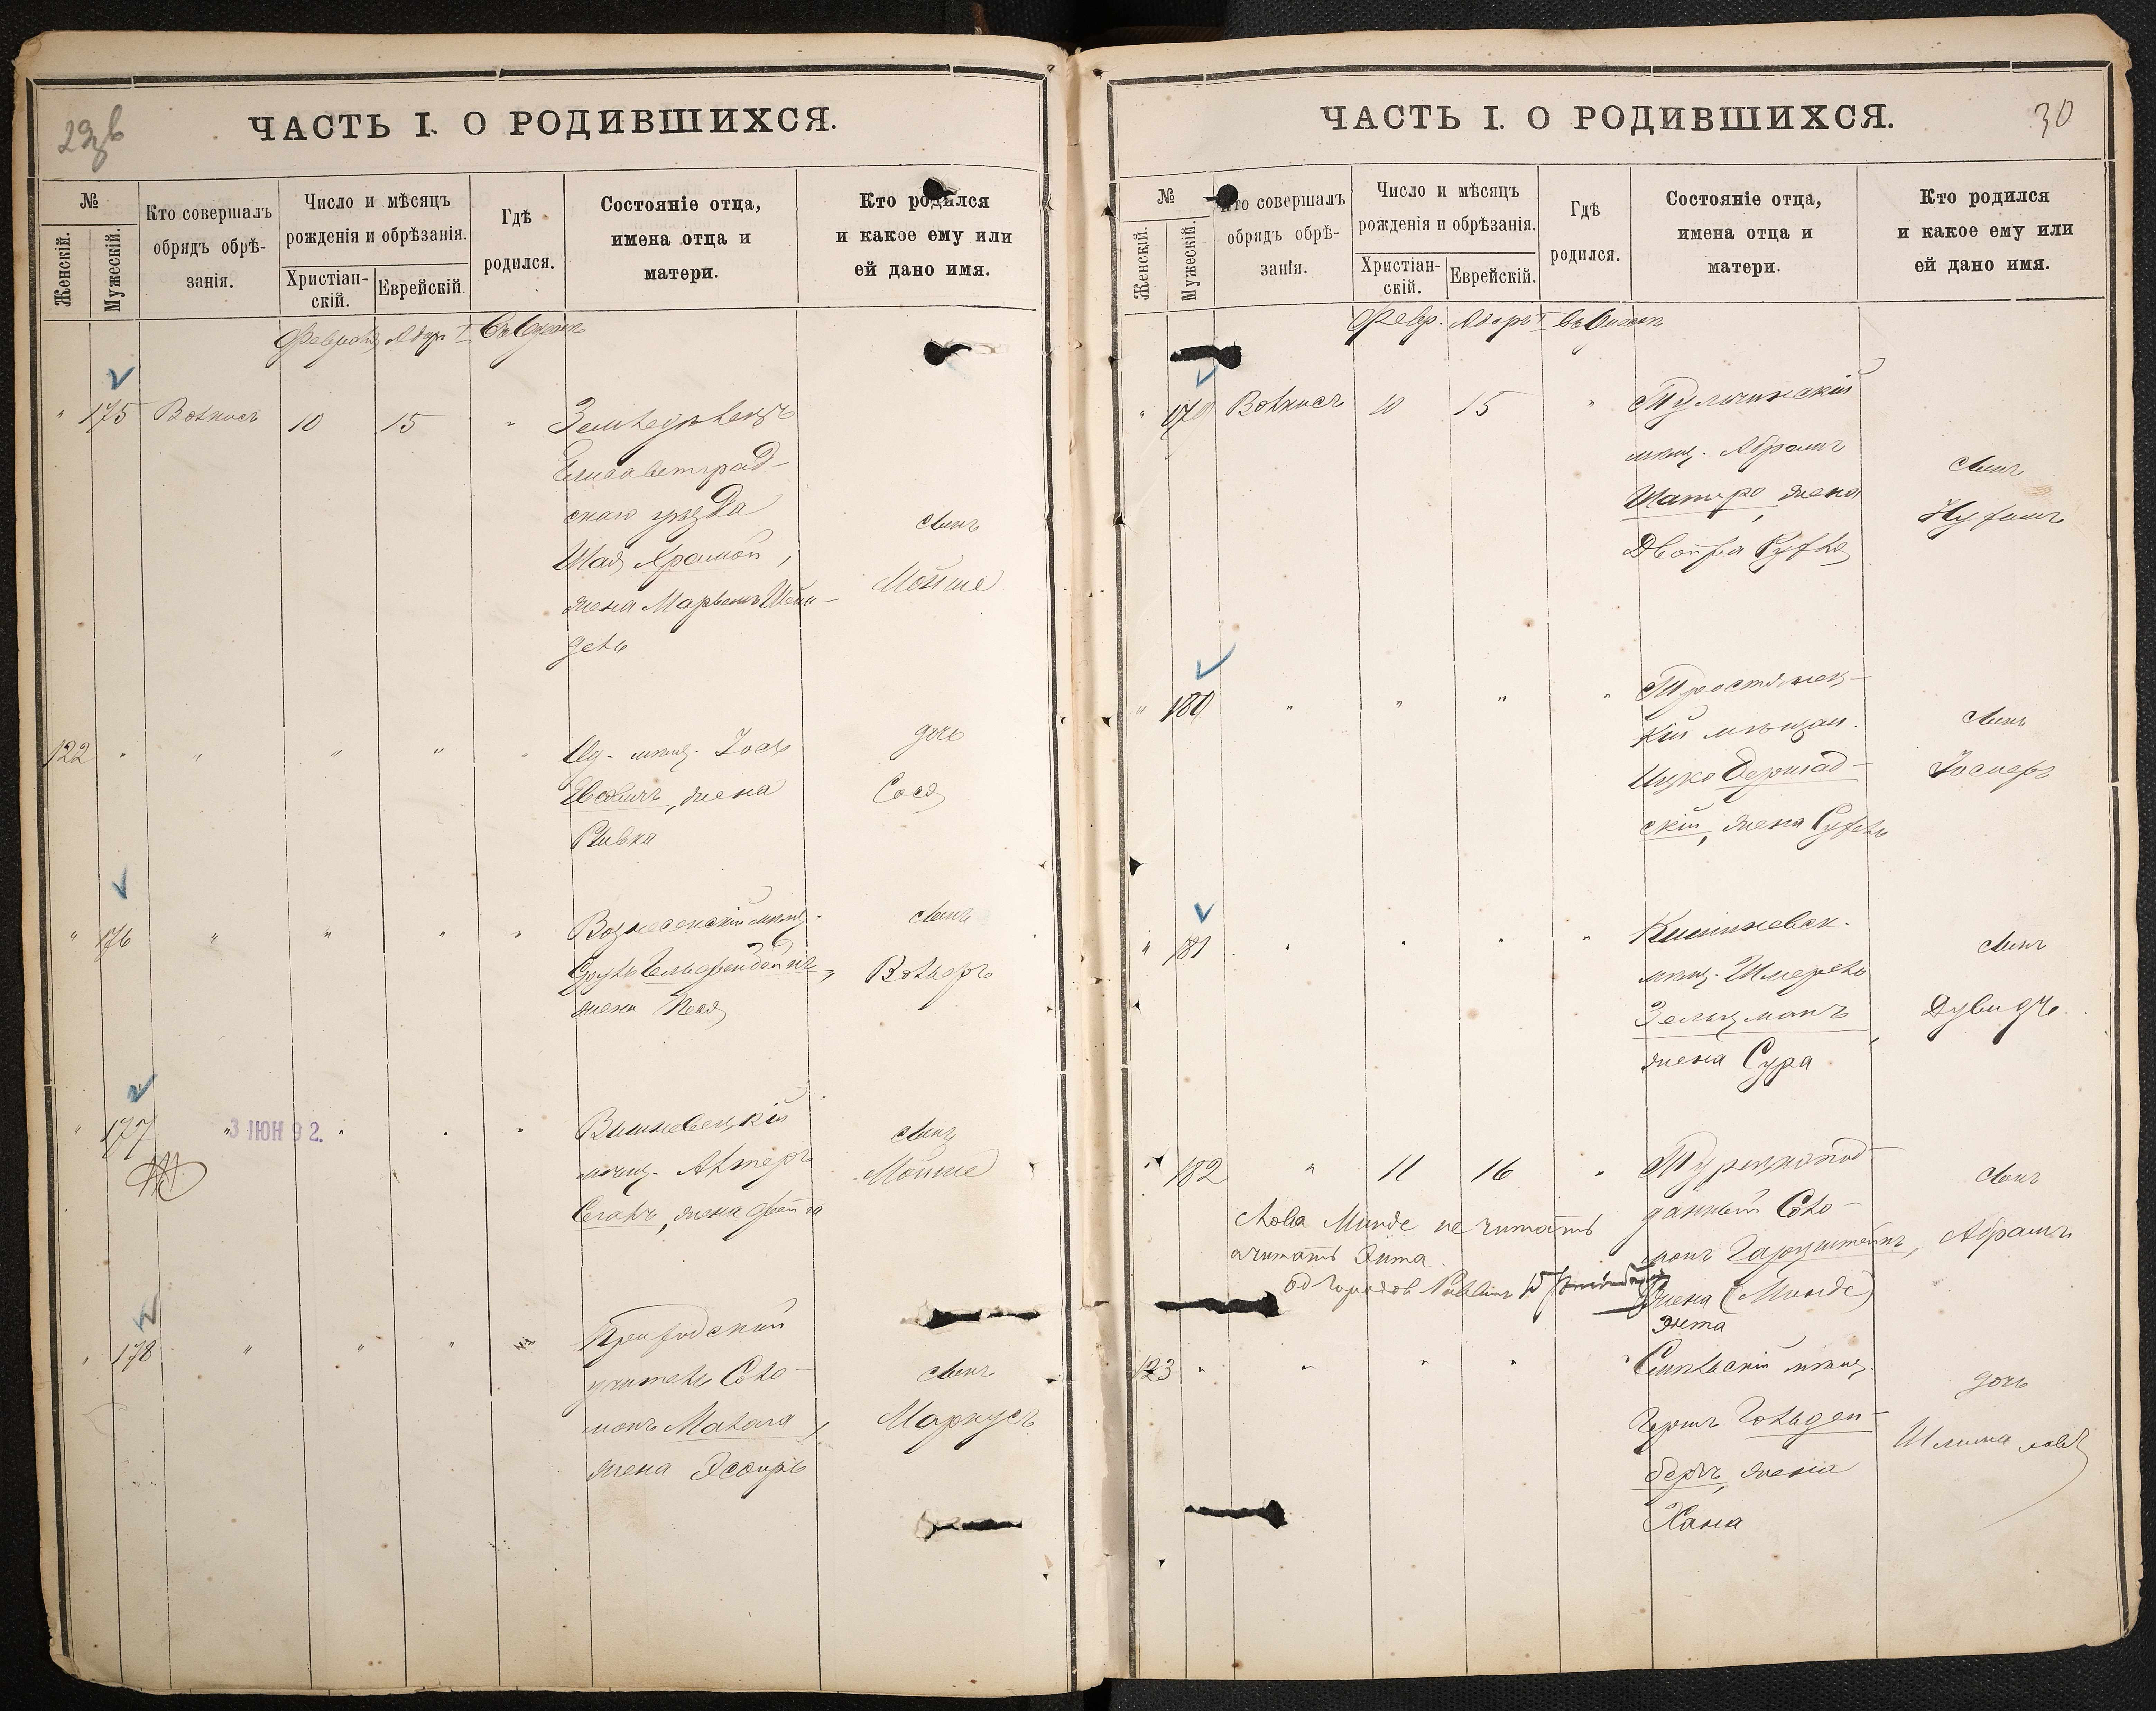 29об
ЧАСТЬ I. О РОДИВШИХСЯ.
№
Женскій.
Мужескій.
Кто совершалъ
обрядъ обрѣ-
занія.
Число и мѣсяцъ
рожденія и обрѣзанія.
Христіан-
скій.
Еврейскій.
Гдѣ
родился.
Состояніе отца,
имена отца и
матери.
Кто родился
и какое ему или
ей дано имя.
Февраля Адаръ I Въ Одессѣ
" 175 Волкисъ 10 15 "
Земледѣлецъ
Елисаветград-
скаго уѣзда
Шая Хромой,
жена Марьемъ Шейн-
дель
сынъ
Мойше
122 " " " " "
Од. мѣщ. Іось
жена
Ривка
дочь
Сося
" 176 " " " "
Вознесенскій мѣщ.
Сруль Гельфендейнъ,
жена Песя
сынъ
Волько
" 177 " " " "
3 ІЮН 92.
Вишневецкій
мѣщ. Алтеръ
Сегаль, жена Фейга
сынъ
Мойше
" 178 " " " "
учитель Соло-
монъ
жена Эсфирь
сынъ
Маркусъ
30
ЧАСТЬ I. О РОДИВШИХСЯ.
№
Женскій.
Мужескій.
Кто совершалъ
обрядъ обрѣ-
занія.
Число и мѣсяцъ
рожденія и обрѣзанія.
Христіан-
скій.
Еврейскій.
Гдѣ
родился.
Состояніе отца,
имена отца и
матери.
Кто родился
и какое ему или
ей дано имя.
Февр. Адаръ I Въ Одессѣ
" 179 Волкисъ 10 15 "
Тульчинскій
мѣщ. Абрамъ
Шапиро, жена
Двойра Рухля
сынъ
Нухимъ
" 180 " " " "
Тростянец-
кій мѣщан.
Ицко Бершад-
скій, жена Рухль
сынъ
Іосифъ
" 181 " " " "
Кишиневск.
мѣщ. Шмерель
Зельцманъ,
жена Сура
сынъ
Дувидъ
" 182 " 11 16 "
Турецкопод-
данный Соло-
монъ Гарцштейнъ,
жена (Минде)
Энта
сынъ
Абрамъ
Слова Минде не читать
а читать Энта.
123 " " " " "
мѣщ.
Гершъ Гольден-
бергъ, жена
Хана
дочь
Шлима